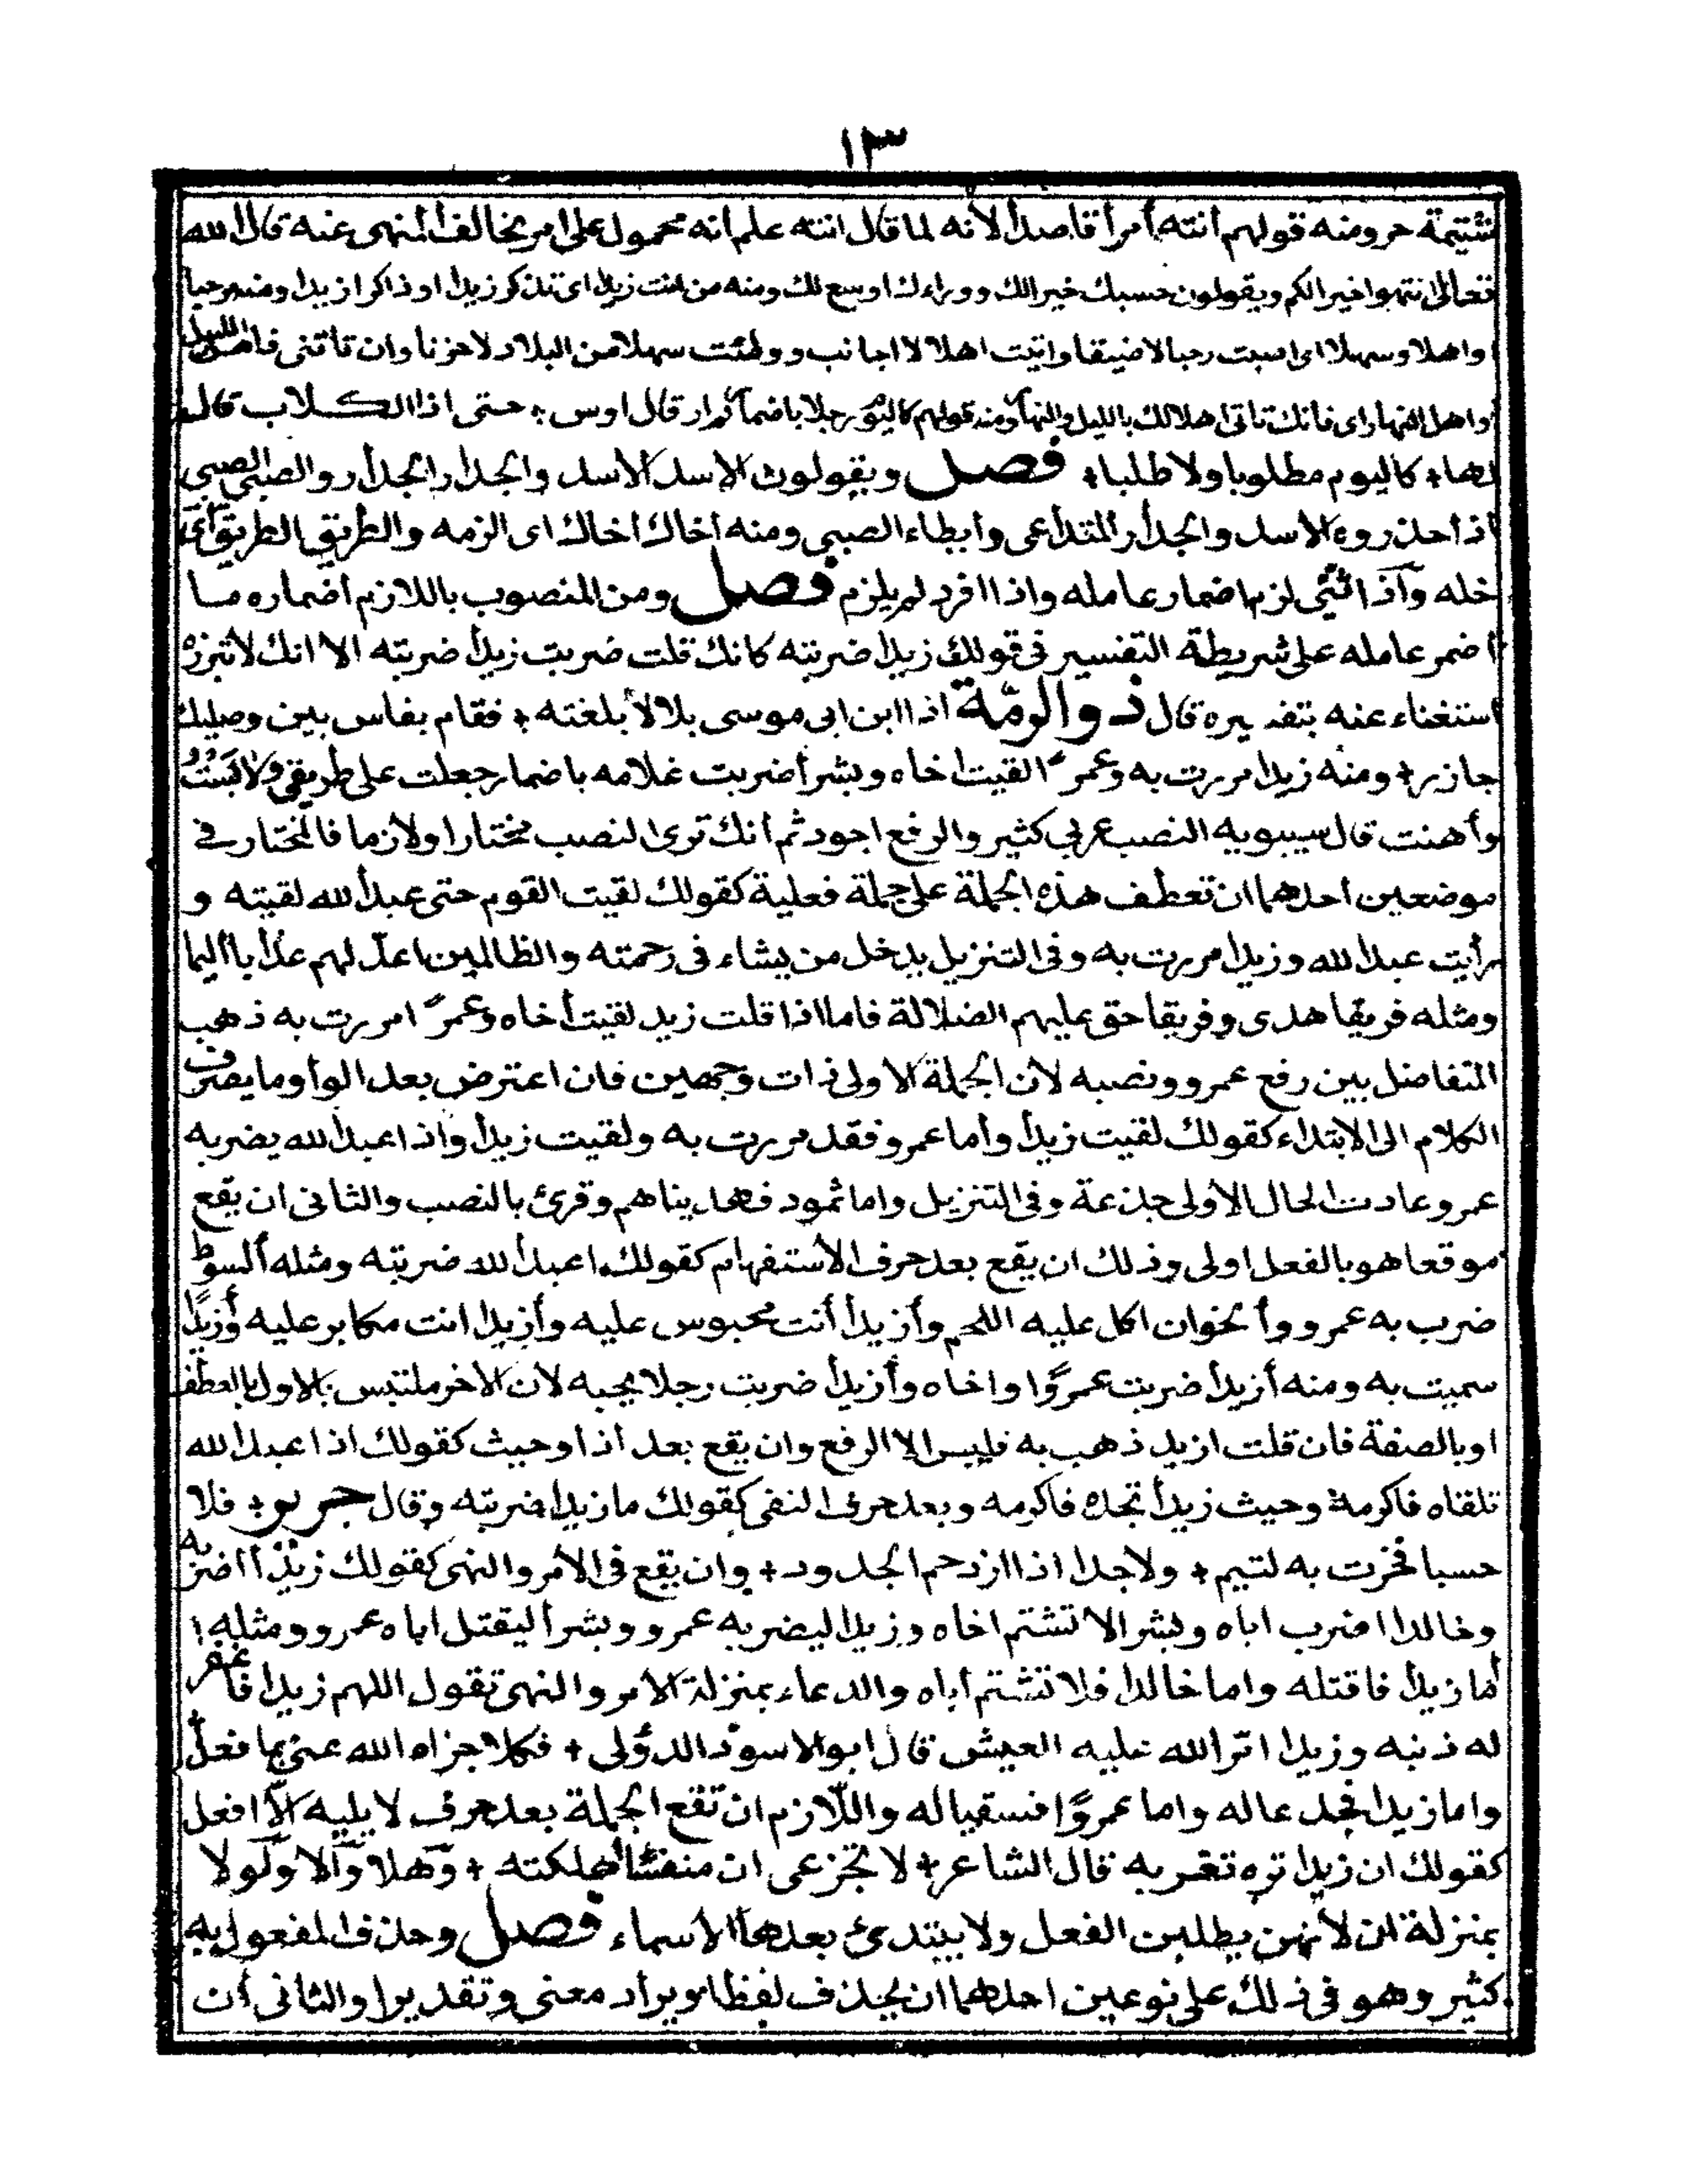 ١٣
شتيمة حر ومنه قولهم انته أمرا قاصدا لأنه لما قال انته علم انه محمول على امر يخالف المنهى عنه قال الله
تعالى انتهوا خيرا لكم ويقولون حسبك خيرا لك ووراءك اوسع لك ومنه من انت زيدا اى تذكر زيدا او ذاكرا زيدا ومنه مرحبا
واهلا وسهلا اى اصبت رحبا لا ضيقا واتيت اهلا لا اجانب ووطئت سهلا من البلاد لا حزنا وان تاتنى فاهل الليل
واهل النهار اى فانك تاتى اهلا لك بالليل والنهار ومنه قولهم كاليوم رجلا باضمار لم ار قال اوس ؛ حتى اذا الكلاب قال
لها + كاليوم مطلوبا ولا طلبا + فصل ويقولون الاسد الأسد والجدار الجدار والصبى الصبى
اذا حذروه الأسد والجدار المتداعى وايطاء الصبى ومنه اخاك اخاك اى الزمه والطريق الطريق اى
خله واذا ثنى لزم اضمار عامله واذا افرد لم يلزم فصل ومن المنصوب باللازم اضماره ما
اضمر عامله على شريطة التفسير فى قولك زيدا ضربته كانك قلت ضربت زيدا ضربته الا انك لا تبرزه
استغناء عنه بتفسيره قال ذو الرمّة اذا ابن ابى موسى بلالا بلغته + فقام بفاس بين وصليك
جازر + ومنه زيدا مررت به وعمرا لقيت اخاه وبشرا ضربت غلامه باضمار جعلت على طريقى ولابست
وأهنت قال سيبويه النصب عربي كثير والرفع اجود ثم انك ترى النصب مختارا ولازما فالمختار في
موضعين احدهما ان تعطف هذه الجملة على جملة فعلية كقولك لقيت القوم حتى عبد الله لقيته و
رأيت عبد الله وزيدا مررت به وفى التنزيل يدخل من يشاء فى رحمته والظالمين اعدّ لهم عذابا أليما
ومثله فريقا هدى وفريقا حق عليهم الضلالة فاما اذا قلت زيد لقيت أخاه وعمرا مررت به ذهب
التفاضل بين رفع عمرو ونصبه لأن الجملة الاولى ذات وجهين فان اعترض بعد الواو ما يصرف
الكلام الى الابتداء كقولك لقيت زيدا وأما عمرو فقد مررت به ولقيت زيدا واذا عبد الله يضربه
عمرو عادت الحال الأولى جذعة وفى التنزيل واما ثمود فهديناهم وقرئ بالنصب والثانى ان يقع
موقعا هو بالفعل اولى وذلك ان يقع بعد حرف الأستفهام كقولك اعبد الله ضربته ومثله ألسوط
ضرب به عمرو وألخوان اكل عليه اللحم وأزيدا أنت محبوس عليه وأزيدا انت مكابر عليه وأزيدا
سميت به ومنه أزيدا ضربت عمرًوا واخاه وأزيدا ضربت رجلا يحبه لان الآخر ملتبس بالاول بالعطف
او بالصفة فان قلت ازيد ذهب به فليس الا الرفع وان يقع بعد اذا وحيث كقولك اذا عبد الله
تلقاه فاكرمه وحيث زيدا تجده فاكرمه وبعد حرف النفى كقولك ما زيدا ضربته وقال جرير + فلا
حسبا فخرت به لتيم + ولا جدا اذا ازدحم الجدود + وان يقع فى الأمر والنهى كقولك زيدا اضربه
وخالدا اضرب اباه وبشرا لا تشتم اخاه وزيدا ليضربه عمرو وبشرا ليقتل اباه عمرو ومثله ا
أما زيدا فاقتله واما خالدا فلا تشتم أباه والدعاء بمنزلة الامر والنهى تقول اللهم زيدا فاغفر
له ذنبه وزيدا امّر الله عليه العيش قال ابو الاسود الدؤلى + فكلا جزاه الله عنى بما فعل
واما زيدا فجدعا له واما عمرًوا فسقيا له واللّازم ان تقع الجملة بعد حرف لا يليه الا افعل
كقولك ان زيدا تره تضربه قال الشاعر + لا تجزعى ان منفسًا أهلكته + وهلا وألا ولولا
بمنزلة ان لأنهن يطلبن الفعل ولا يبتدئ بعدها الأسماء فصل وحذف المفعول به
كثير وهو فى ذلك على نوعين احدهما ان يحذف لفظا ويراد معنى وتقديرا والثانى أن